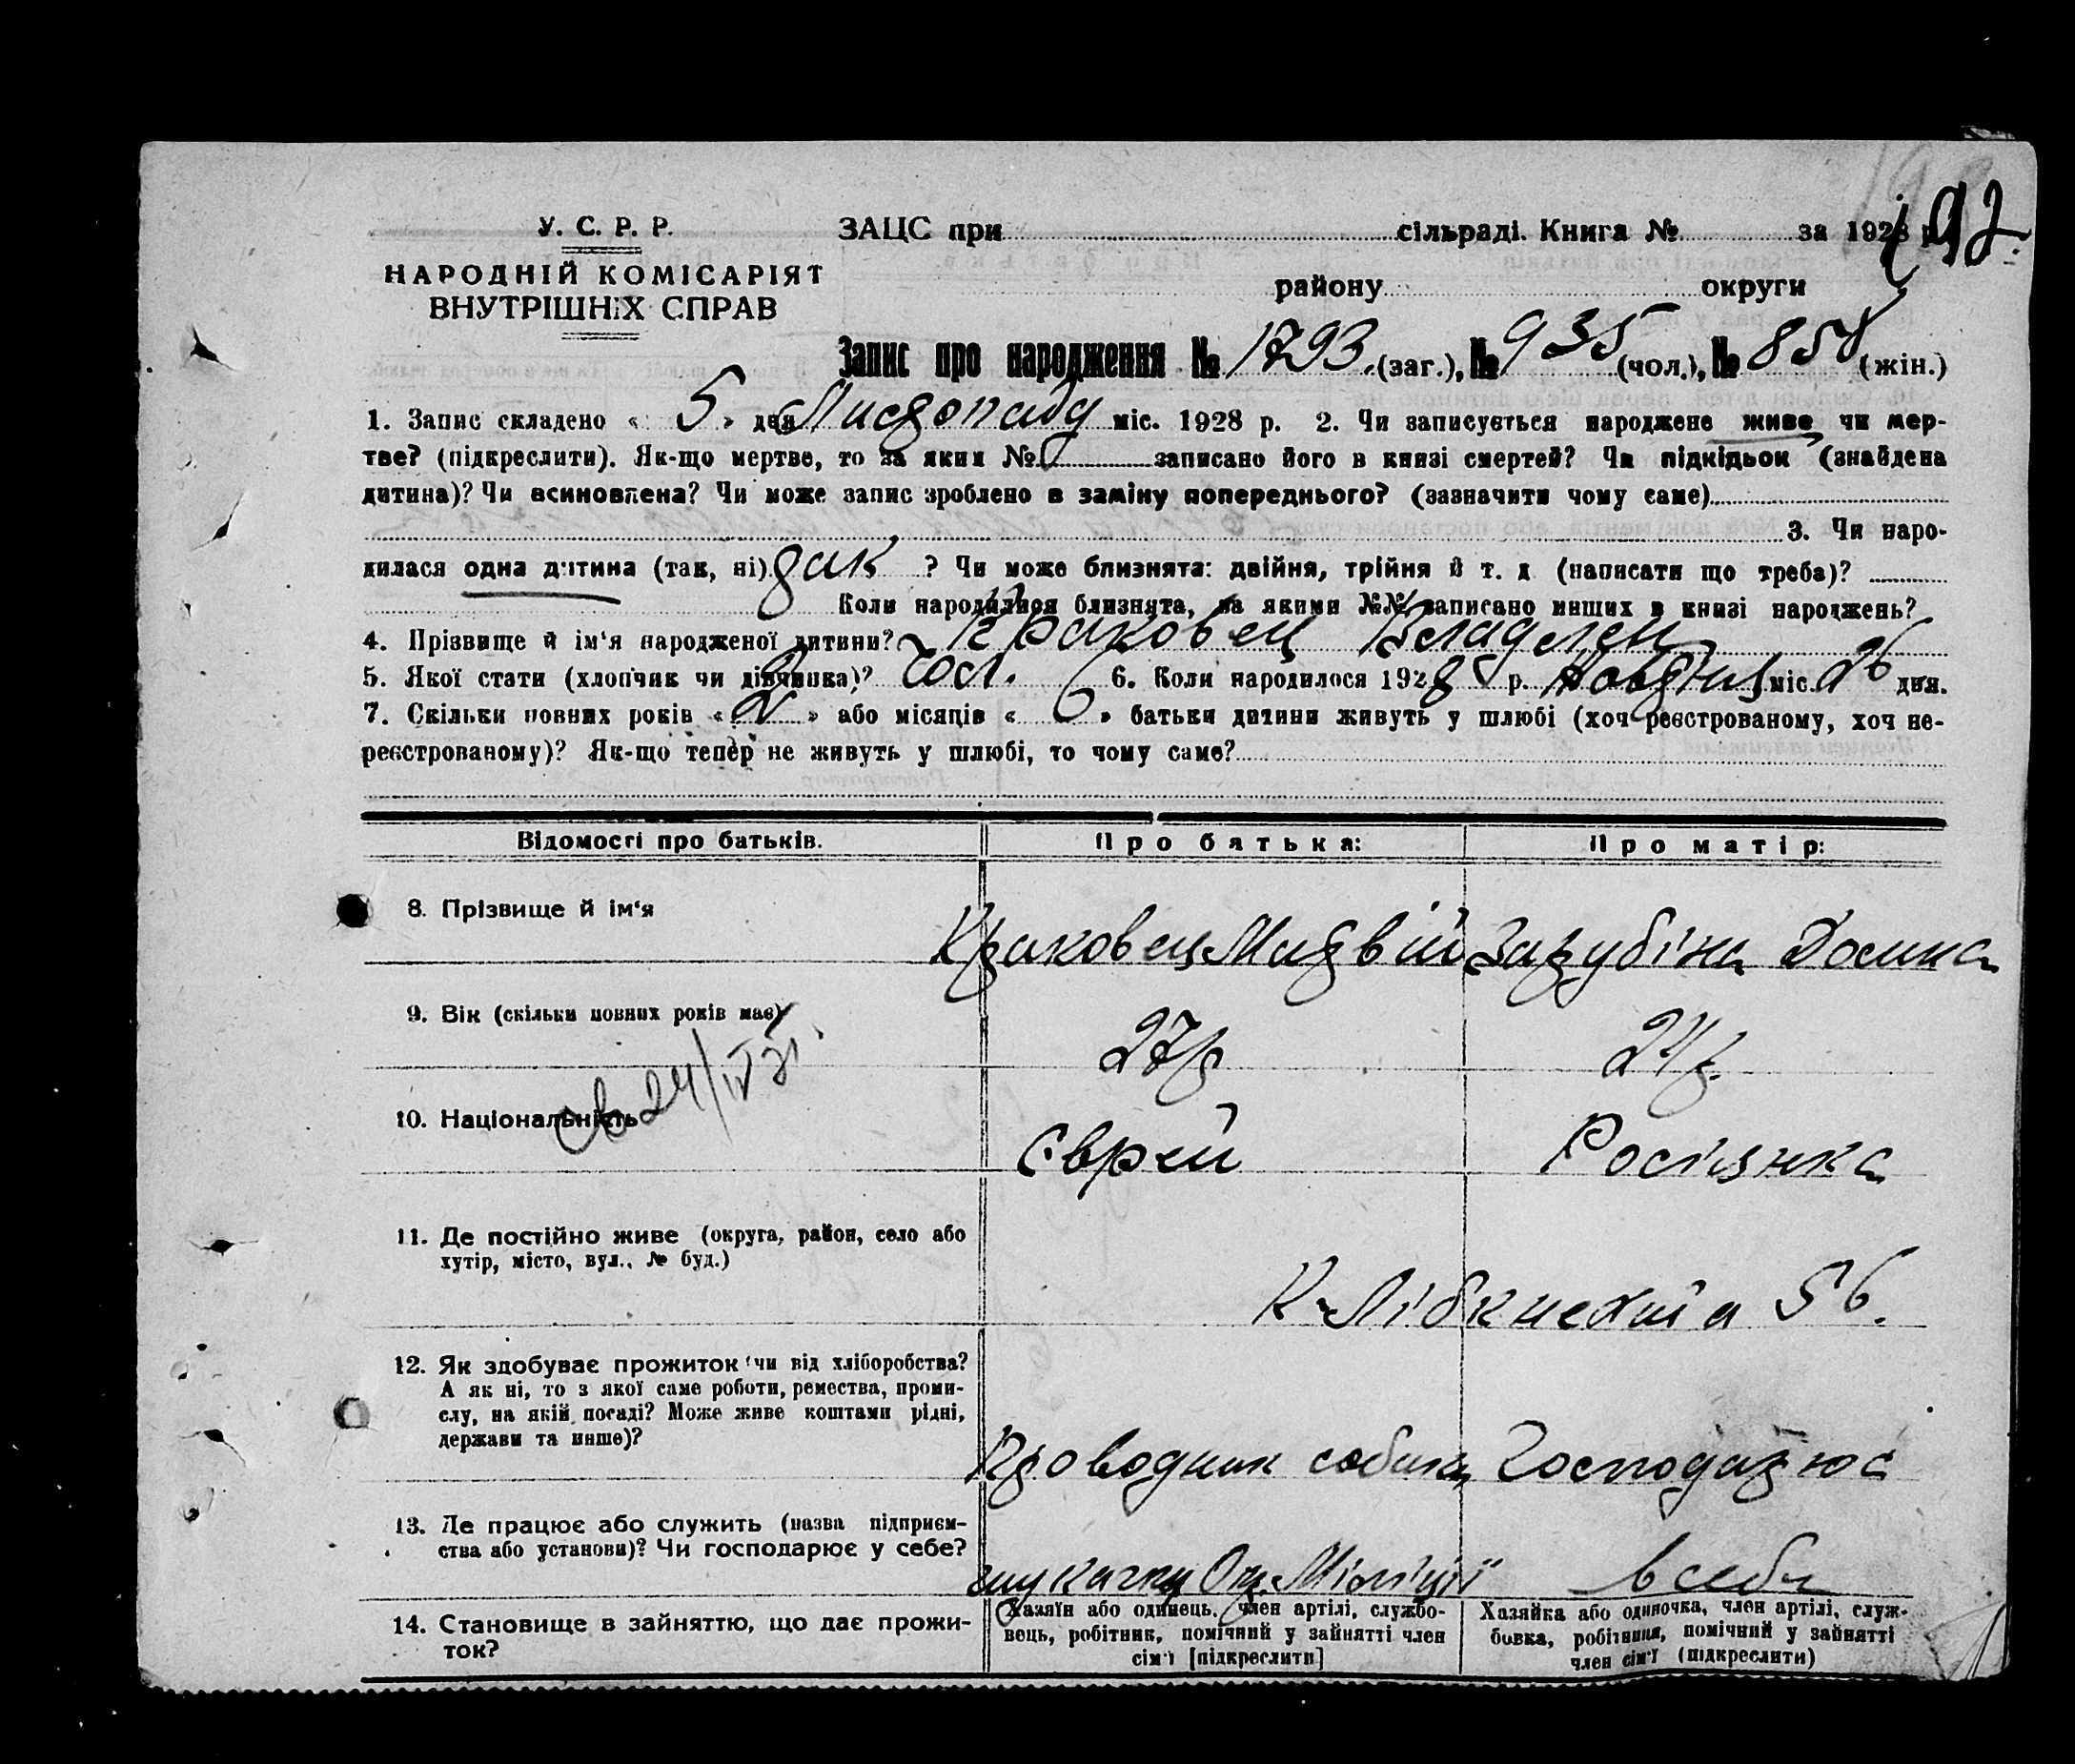 192.
У. С. Р. Р.
НАРОДНІЙ КОМІСАРІЯТ
ВНУТРІШНІХ СПРАВ
ЗАЦС при сільраді. Книга № за 1928 р.
району округи
Запис про народження № 1793 (заг.), № 935 (чол.), № 858 (жін.)
1. Запис складено « 5 » дня Листопаду міс. 1928 р. 2. Чи записується народжене живе чи мер-
тве? (підкреслити). Як-що мертве, то за яким № записано його в книзі смертей? Чи підкідьок (знайдена
дитина)? Чи всиновлена? Чи може запис зроблено в заміну попереднього? (зазначити чому саме)
3. Чи наро-
дилася одна дитина (так, ні) так ? Чи може близнята: двійня, трійня й т. д (написати що треба)?
Коли народилися близнята, за якими №№ записано инших в книзі народжень?
4. Прізвище й ім'я народженої дитини? Краковец Владлен
5. Якої стати (хлопчик чи дівчинка)? чол. 6. Коли народилося 1928 р. Жовтня міс. 26 дня.
7. Скільки повних років « 2 » або місяців « 6 » батьки дитини живуть у шлюбі (хоч реєстрованому, хоч не-
реєстрованому)? Як-що тепер не живуть у шлюбі, то чому саме?
Відомості про батьків. Про батька: Про матір:
8. Прізвище й ім'я Краковец Матвій Зарубіна
9. Вік (скільки повних років має) 27 р 24 р.
24/IV
10. Національність Єврей Росіянка
11. Де постійно живе (округа, район, село або
хутір, місто, вул., № буд.)
К-Лібкнехта 56.
12. Як здобуває прожиток чи від хліборобства?
А як ні, то з якої саме роботи, ремества, проми-
слу, на якій посаді? Може живе коштами рідні,
держави та инше)?
Проводник собаки Господарює
13. Де працює або служить (назва підприєм-
ства або установи)? Чи господарює у себе?
шукачки Окр. Міліції в себе
14. Становище в зайняттю, що дає прожи-
ток?
Хазяїн або одинець, член артілі, службо-
вець, робітник, помічний у зайнятті член
сім'ї [підкреслити]
Хазяйка або одиночка, член артілі, служ-
бовка, робітниця, помічний у зайнятті
член сім'ї (підкреслити)